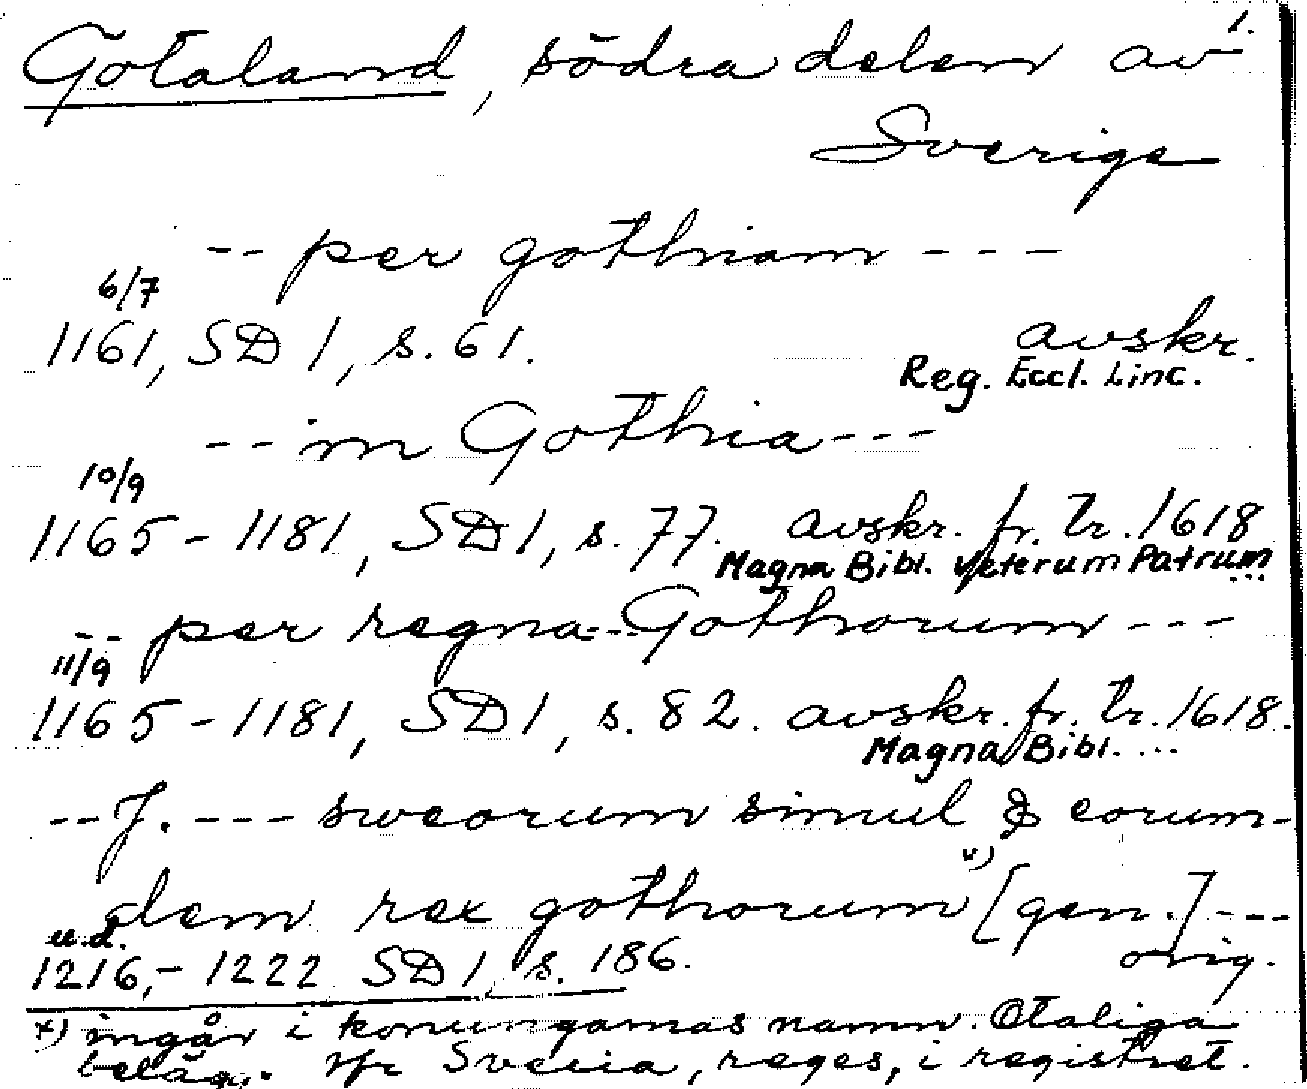 1.
Götaland, södra delen av
Sverige
-- per gothiam ---
6/7
1161, SD 1, s. 61. avskr.
Reg. Eccl. Linc.
-- in Gothia ---
10/9
1165 - 1181, SD 1, s. 77. avskr. fr. tr. 1618
Magna Bibl. Veterum Patrum ...
-- per regna --- Gothorum ---
11/9
1165 - 1181, SD 1, s. 82. avskr. fr. tr. 1618.
Magna Bibl. ...
-- J. --- sweorum simul & eorum-
dem rex gothorum x) [gen.] ---
u.d. orig.
1216,- 1222 SD 1, s. 186.
x) ingår i konungarnas namn. Otaliga
belägg. Jfr Svecia, reges, i registret.